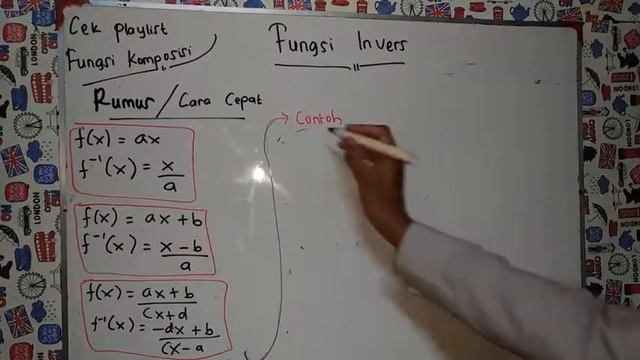 Cek Playlist
Fungsi Komposisi
Fungsi Invers
Rumus / Cara Cepat
Contoh
f(x) = ax
f⁻¹(x) = x/a
f(x) = ax + b
f⁻¹(x) = x - b/a
f(x) = ax + b/cx + d
f⁻¹(x) = -dx + b/cx - a
LONDON
LONDON
LONDON